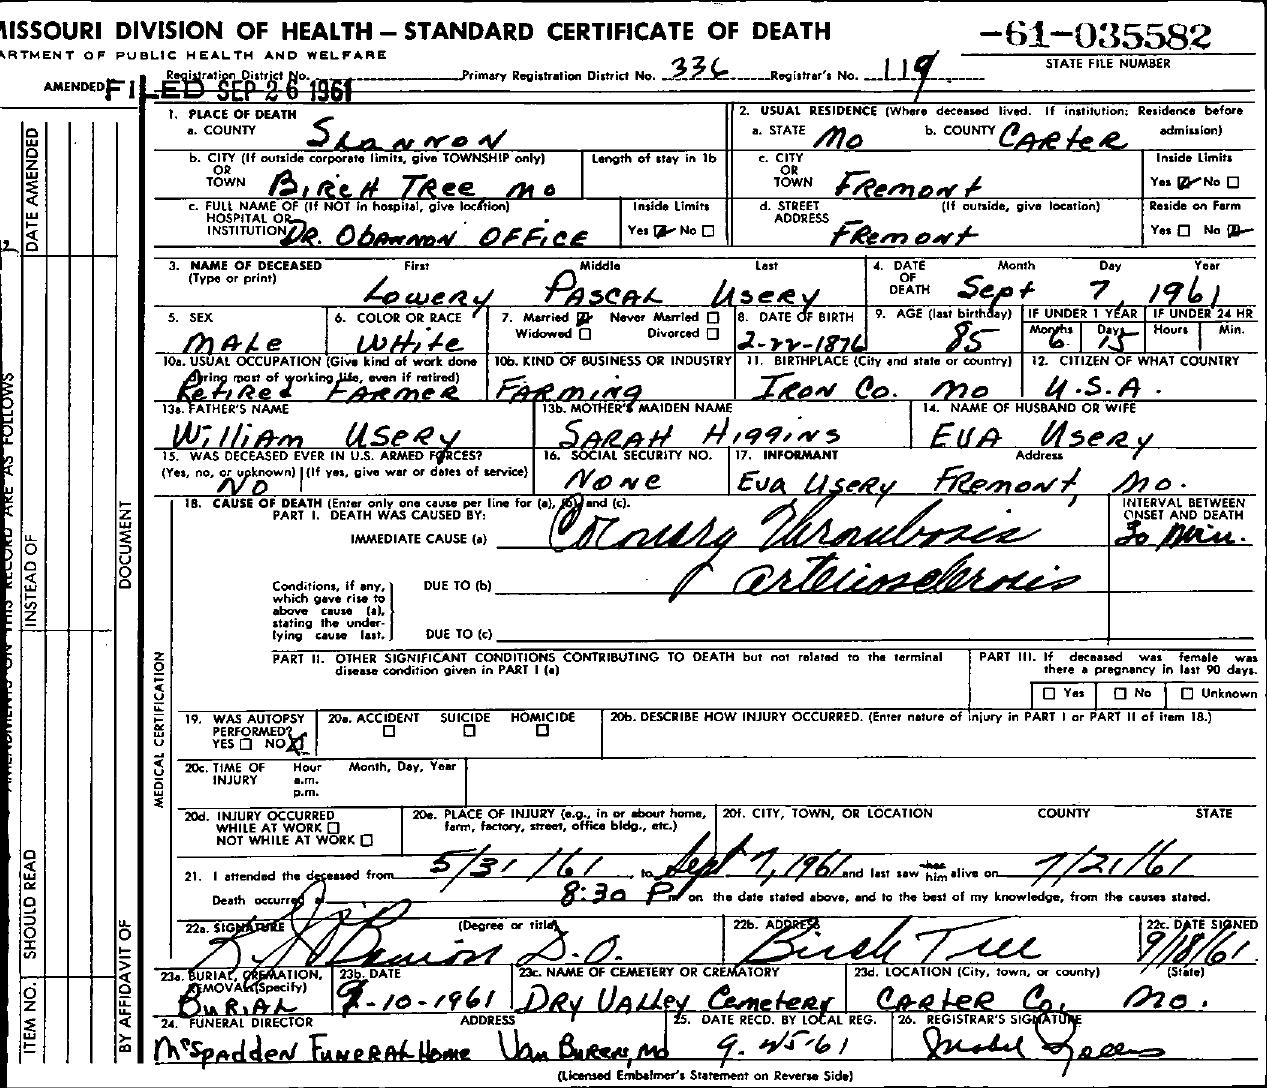 MISSOURI DIVISION OF HEALTH – STANDARD CERTIFICATE OF DEATH
-61-035582
ARTMENT OF PUBLIC HEALTH AND WELFARE
STATE FILE NUMBER
Registration District No. Primary Registration District No. 336 Registrar's No. 119
AMENDED FILED SEP 26 1961
1. PLACE OF DEATH
a. COUNTY SHANNON
2. USUAL RESIDENCE (Where deceased lived. If institution: Residence before admission)
a. STATE MO b. COUNTY CARTER
b. CITY (If outside corporate limits, give TOWNSHIP only) OR TOWN BIRCH TREE MO
Length of stay in 1b
c. CITY OR TOWN FREMONT
Inside Limits Yes No
c. FULL NAME OF (If NOT in hospital, give location) HOSPITAL OR INSTITUTION DR. OBANNON OFFICE
Inside Limits Yes No
d. STREET ADDRESS (If outside, give location) FREMONT
Reside on Farm Yes No
3. NAME OF DECEASED (Type or print) First Middle Last
LOWERY PASCAL USERY
4. DATE OF DEATH Month Day Year
Sept 7, 1961
5. SEX MALE
6. COLOR OR RACE WHITE
7. Married Never Married Widowed Divorced
8. DATE OF BIRTH 2-22-1876
9. AGE (last birthday) 85
IF UNDER 1 YEAR Months 6 Days 15
IF UNDER 24 HR Hours Min.
10a. USUAL OCCUPATION (Give kind of work done during most of working life, even if retired) RETIRED FARMER
10b. KIND OF BUSINESS OR INDUSTRY FARMING
11. BIRTHPLACE (City and state or country) IRON CO. MO
12. CITIZEN OF WHAT COUNTRY U.S.A.
13a. FATHER'S NAME WILLIAM USERY
13b. MOTHER'S MAIDEN NAME SARAH HIGGINS
14. NAME OF HUSBAND OR WIFE EVA USERY
15. WAS DECEASED EVER IN U.S. ARMED FORCES? (Yes, no, or unknown) (If yes, give war or dates of service) NO
16. SOCIAL SECURITY NO. NONE
17. INFORMANT Address EVA USERY FREMONT, MO.
18. CAUSE OF DEATH (Enter only one cause per line for (a), (b), and (c).
PART I. DEATH WAS CAUSED BY:
IMMEDIATE CAUSE (a) Coronary Thrombosis
INTERVAL BETWEEN ONSET AND DEATH Min.
Conditions, if any, which gave rise to above cause (a), stating the underlying cause last.
DUE TO (b) arteriosclerosis
DUE TO (c)
PART II. OTHER SIGNIFICANT CONDITIONS CONTRIBUTING TO DEATH but not related to the terminal disease condition given in PART I (a)
PART III. If deceased was female was there a pregnancy in last 90 days.
Yes No Unknown
19. WAS AUTOPSY PERFORMED? YES NO
20a. ACCIDENT SUICIDE HOMICIDE
20b. DESCRIBE HOW INJURY OCCURRED. (Enter nature of injury in PART I or PART II of item 18.)
20c. TIME OF INJURY Hour a.m. p.m. Month, Day, Year
20d. INJURY OCCURRED WHILE AT WORK NOT WHILE AT WORK
20e. PLACE OF INJURY (e.g., in or about home, farm, factory, street, office bldg., etc.)
20f. CITY, TOWN, OR LOCATION COUNTY STATE
21. I attended the deceased from 5/31/61, to Sept 7, 1961 and last saw her him alive on 7/21/61
Death occurred at 8:30 P m on the date stated above, and to the best of my knowledge, from the causes stated.
22a. SIGNATURE (Degree or title) D.O.
22b. ADDRESS Birch Tree
22c. DATE SIGNED 9/18/61
23a. BURIAL, CREMATION, REMOVAL (Specify) BURIAL
23b. DATE 9-10-1961
23c. NAME OF CEMETERY OR CREMATORY DRY VALLEY CEMETERY
23d. LOCATION (City, town, or county) (State) CARTER CO, MO.
24. FUNERAL DIRECTOR ADDRESS McSPADDEN FUNERAL HOME VAN BUREN, MO
25. DATE RECD. BY LOCAL REG.
26. REGISTRAR'S SIGNATURE Mabel
(Licensed Embalmer's Statement on Reverse Side)
AMENDMENTS ON THIS RECORD ARE AS FOLLOWS
DATE AMENDED
INSTEAD OF
SHOULD READ
ITEM NO.
DOCUMENT
BY AFFIDAVIT OF
MEDICAL CERTIFICATION